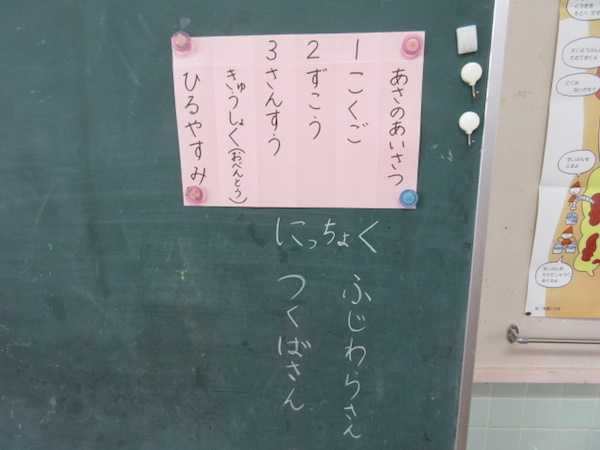 あさのあいさつ
1 こくご
2 ずこう
3 さんすう
きゅうしょく(おべんとう)
ひるやすみ
にっちょく
ふじわらさん
つくばさん